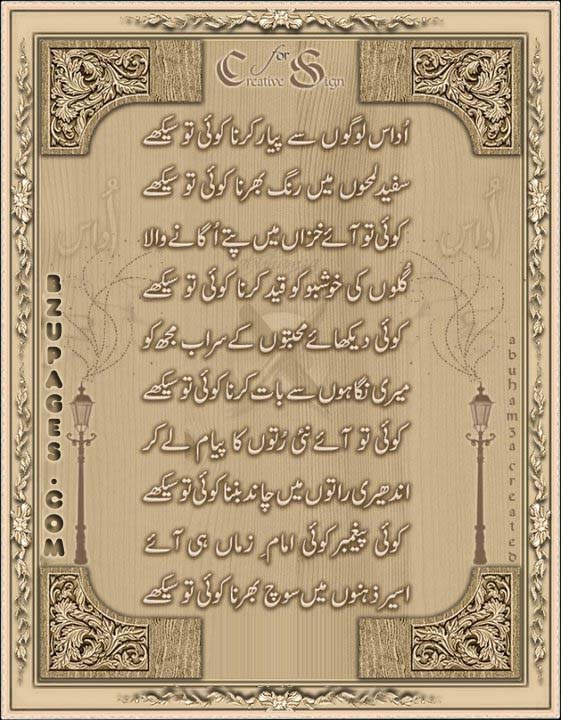 for
Creative Sign
اُداس لوگوں سے پیار کرنا کوئی تو سیکھے
سفید لمحوں میں رنگ بھرنا کوئی تو سیکھے
کوئی تو آئے خزاں میں پتے اُگانے والا
گلوں کی خوشبو کو قید کرنا کوئی تو سیکھے
کوئی دیکھائے محبتوں کے سراب مجھ کو
میری نگاہوں سے بات کرنا کوئی تو سیکھے
کوئی تو آئے نئی رُتوں کا پیام لے کر
اندھیری راتوں میں چاند بننا کوئی تو سیکھے
کوئی پیغمبر کوئی امام زماں ہی آئے
اسیر ذہنوں میں سوچ بھرنا کوئی تو سیکھے
اُداس
اُداس
BZUPAGES.COM
abuhamza created